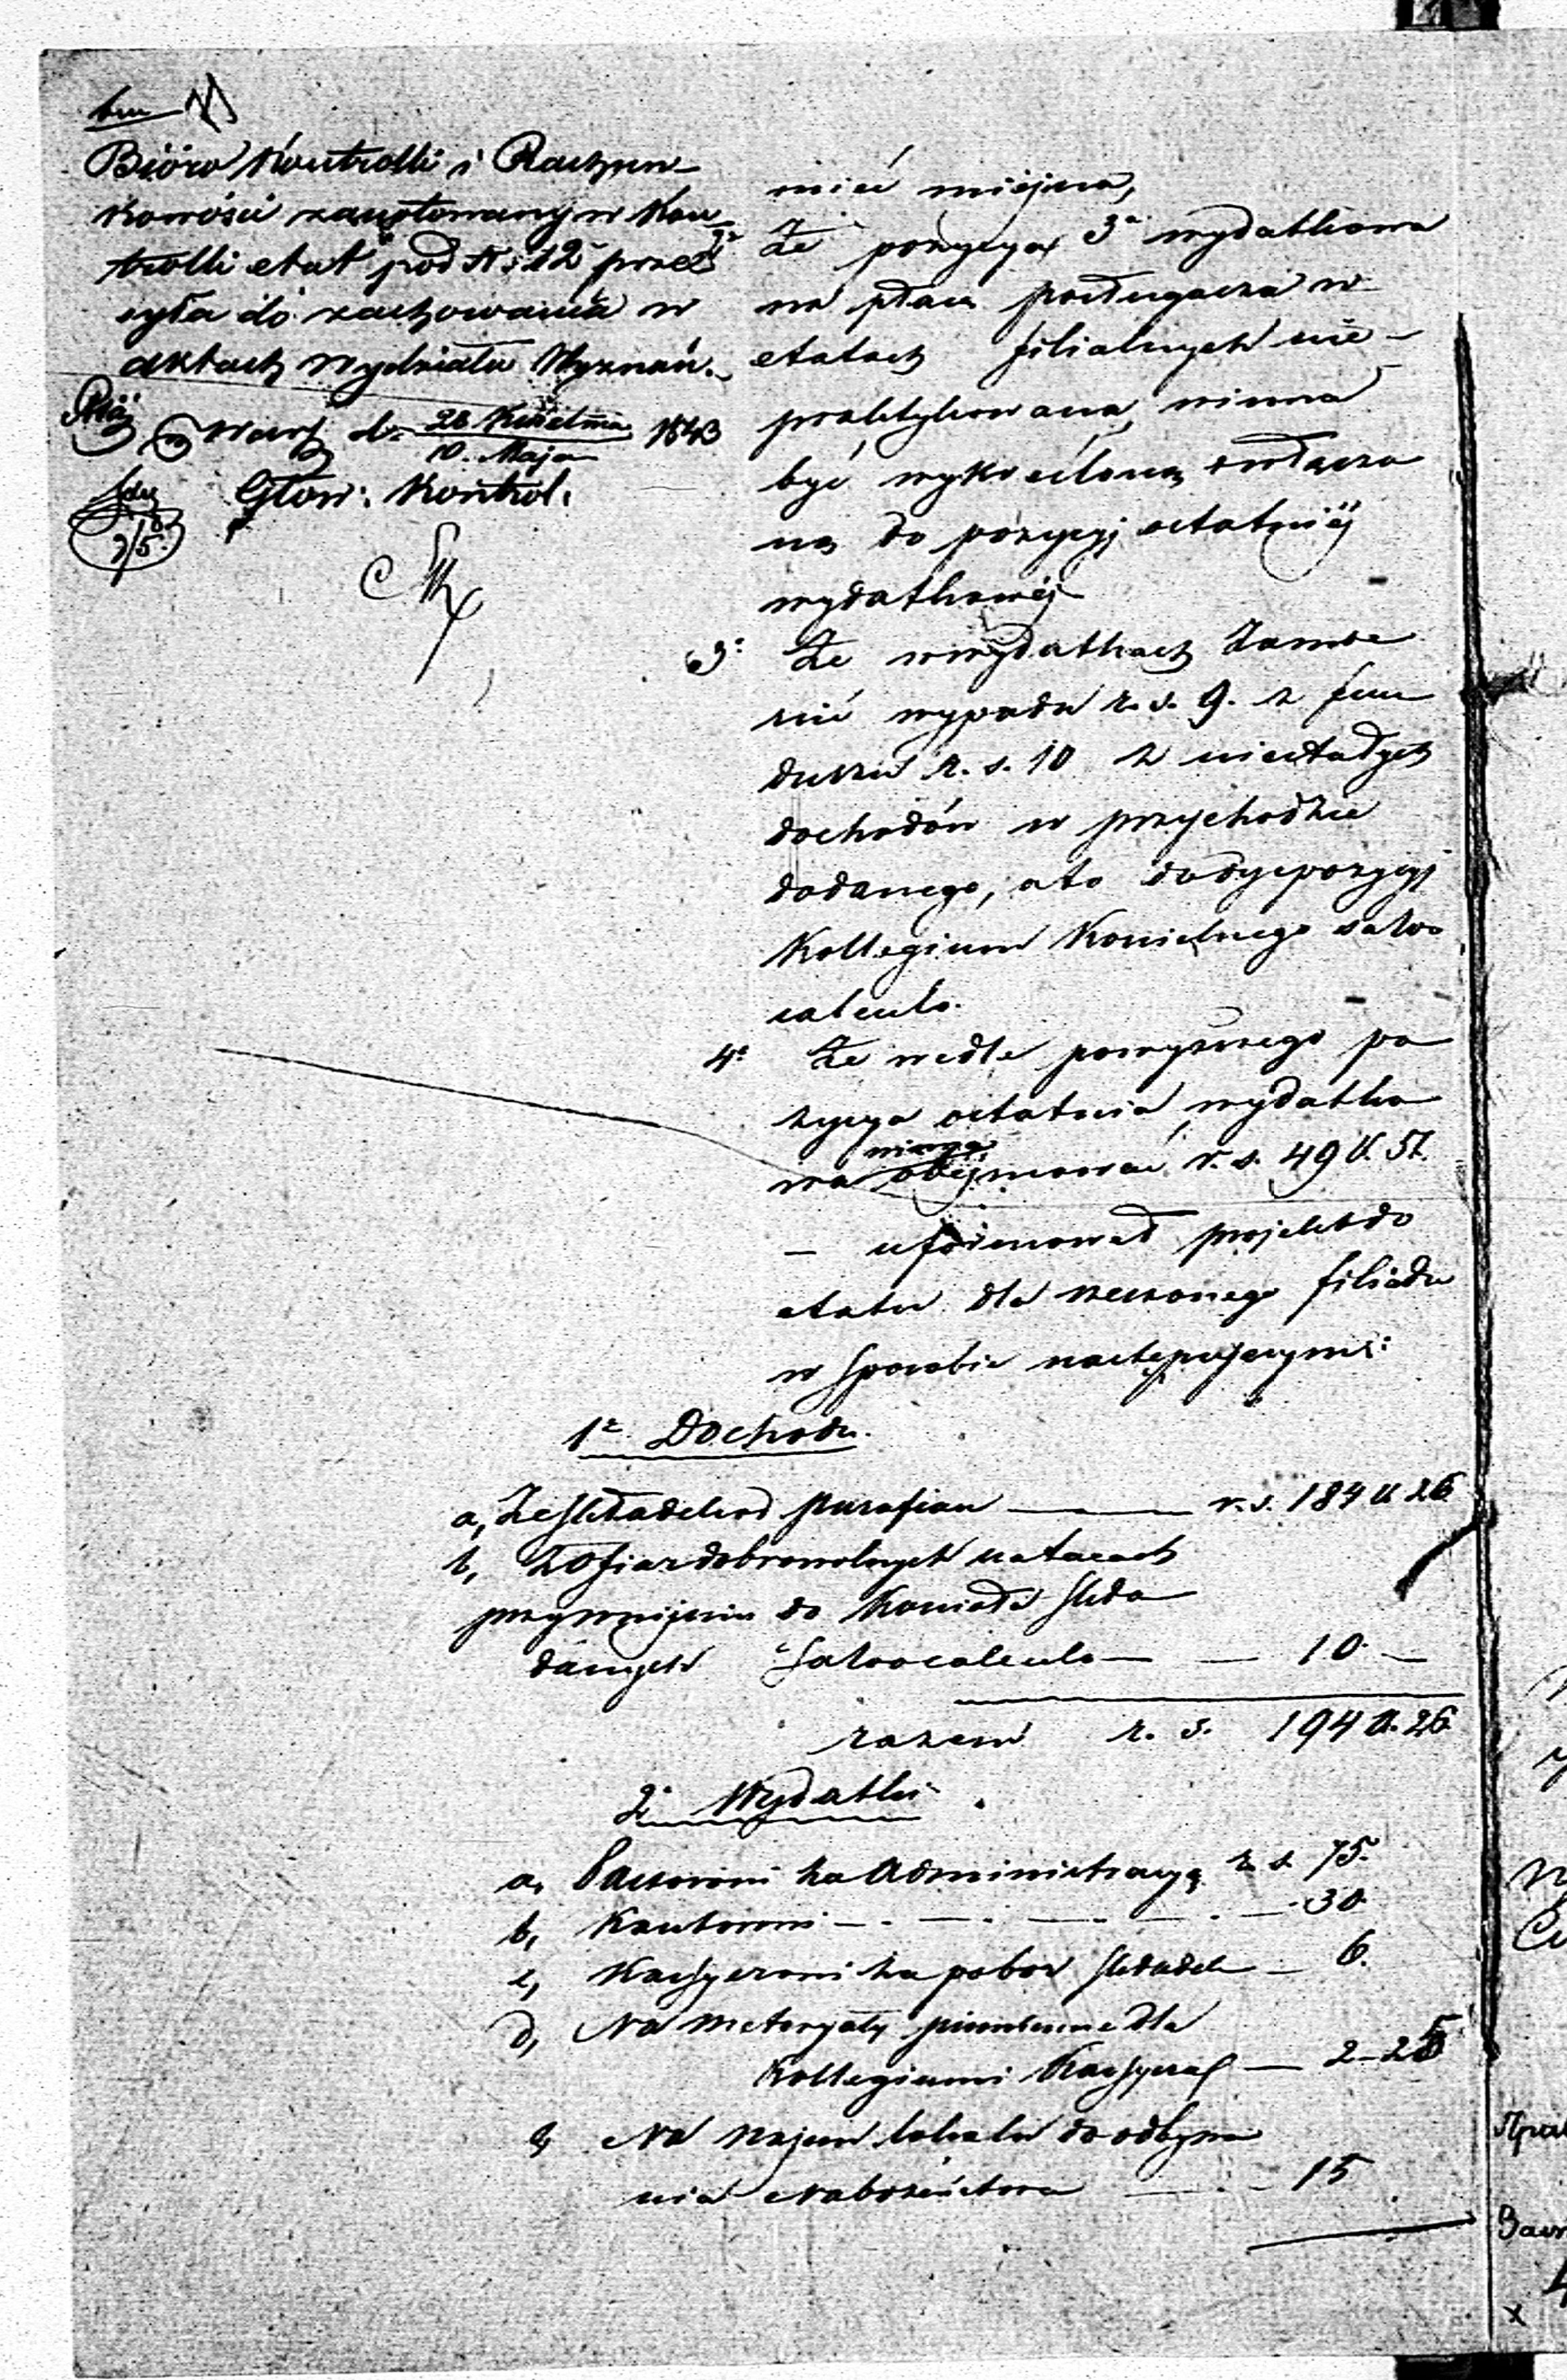 Bióro Kontrolli i Rachun-
kowości zanotowany w Kon-
trolli etat pod N: 12 prze-
syła do zachowania w
aktach Wydziału Wyznań.
Warsz d. 28 Kwietnia 1843
10. Maja
Głów: Kontrol:
mieć miejsca,
Że pozycya 3a wydatkowa
na płacę podługacza w
etatach filialnych nie-
praktykowana, winna
być wykreśloną
ną do pozycyj ostatniéj
wydatkowéj
3° Że w wydatkach zamie
ścić wypada r. s. 9. z fun
duszu r. s. 10 z niestałych
dochodów w przychodzie
dodanego, a to do dyspozycyj
Kollegium Kościelnego salvo
calculo.
4° Że wedle powyższego po
zycya ostatnia wydatko
winna
wa obejmować r. s. 49 k. 51.
– uformował projekt do
etatu dla rzeczonego filiału
w sposobie następującym:
1° Dochody.
a, Ze składek od parafian — r. s. 184 k 26
b, Z ofiar dobrowolnych na tacach
przy wnijściu do kościoła skła
danych salvo calculo — — 10 —
razem r. s. 194 k. 26
2° Wydatki
a, Pastorowi za Administracyą r. s. 75.
b, Kantorowi — . — . — . — . — 30
c, Kassyerowi za pobór składek — 6.
d, Na materyały piśmienne dla
Kollegium i Kassyera — 2–25
e, Na najem lokalu do odbywa
nia Nabożeństwa — . – 15